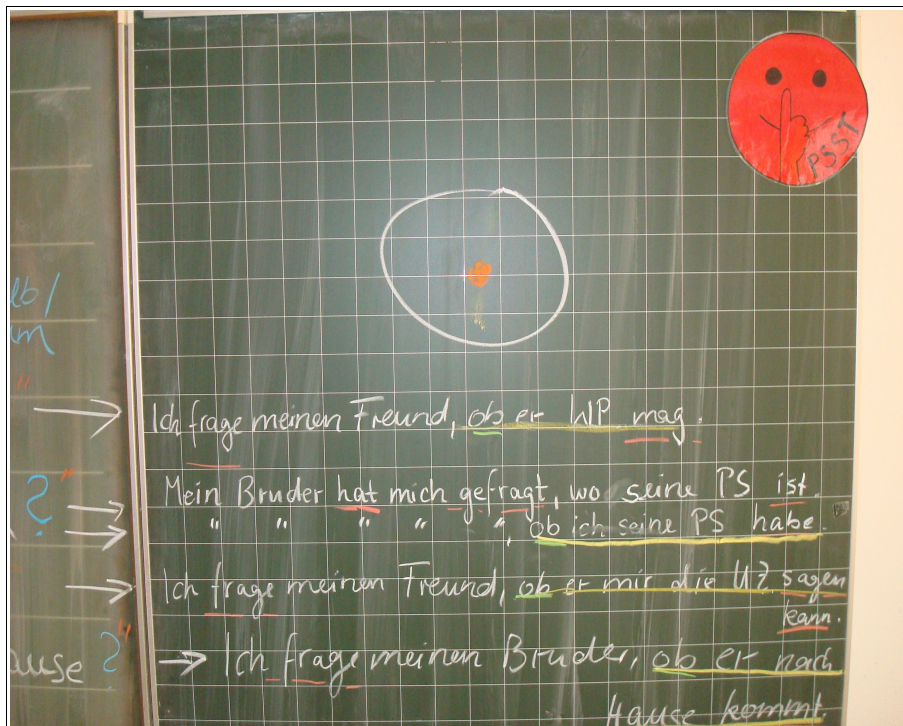 PSST
lb/
um
"
→ Ich frage meinen Freund, ob er WP mag.
?" → Mein Bruder hat mich gefragt, wo seine PS ist.
→ " " " " ", ob ich seine PS habe.
→ Ich frage meinen Freund, ob er mir die UZ sagen
kann.
ause ?" → Ich frage meinen Bruder, ob er nach
Hause kommt.